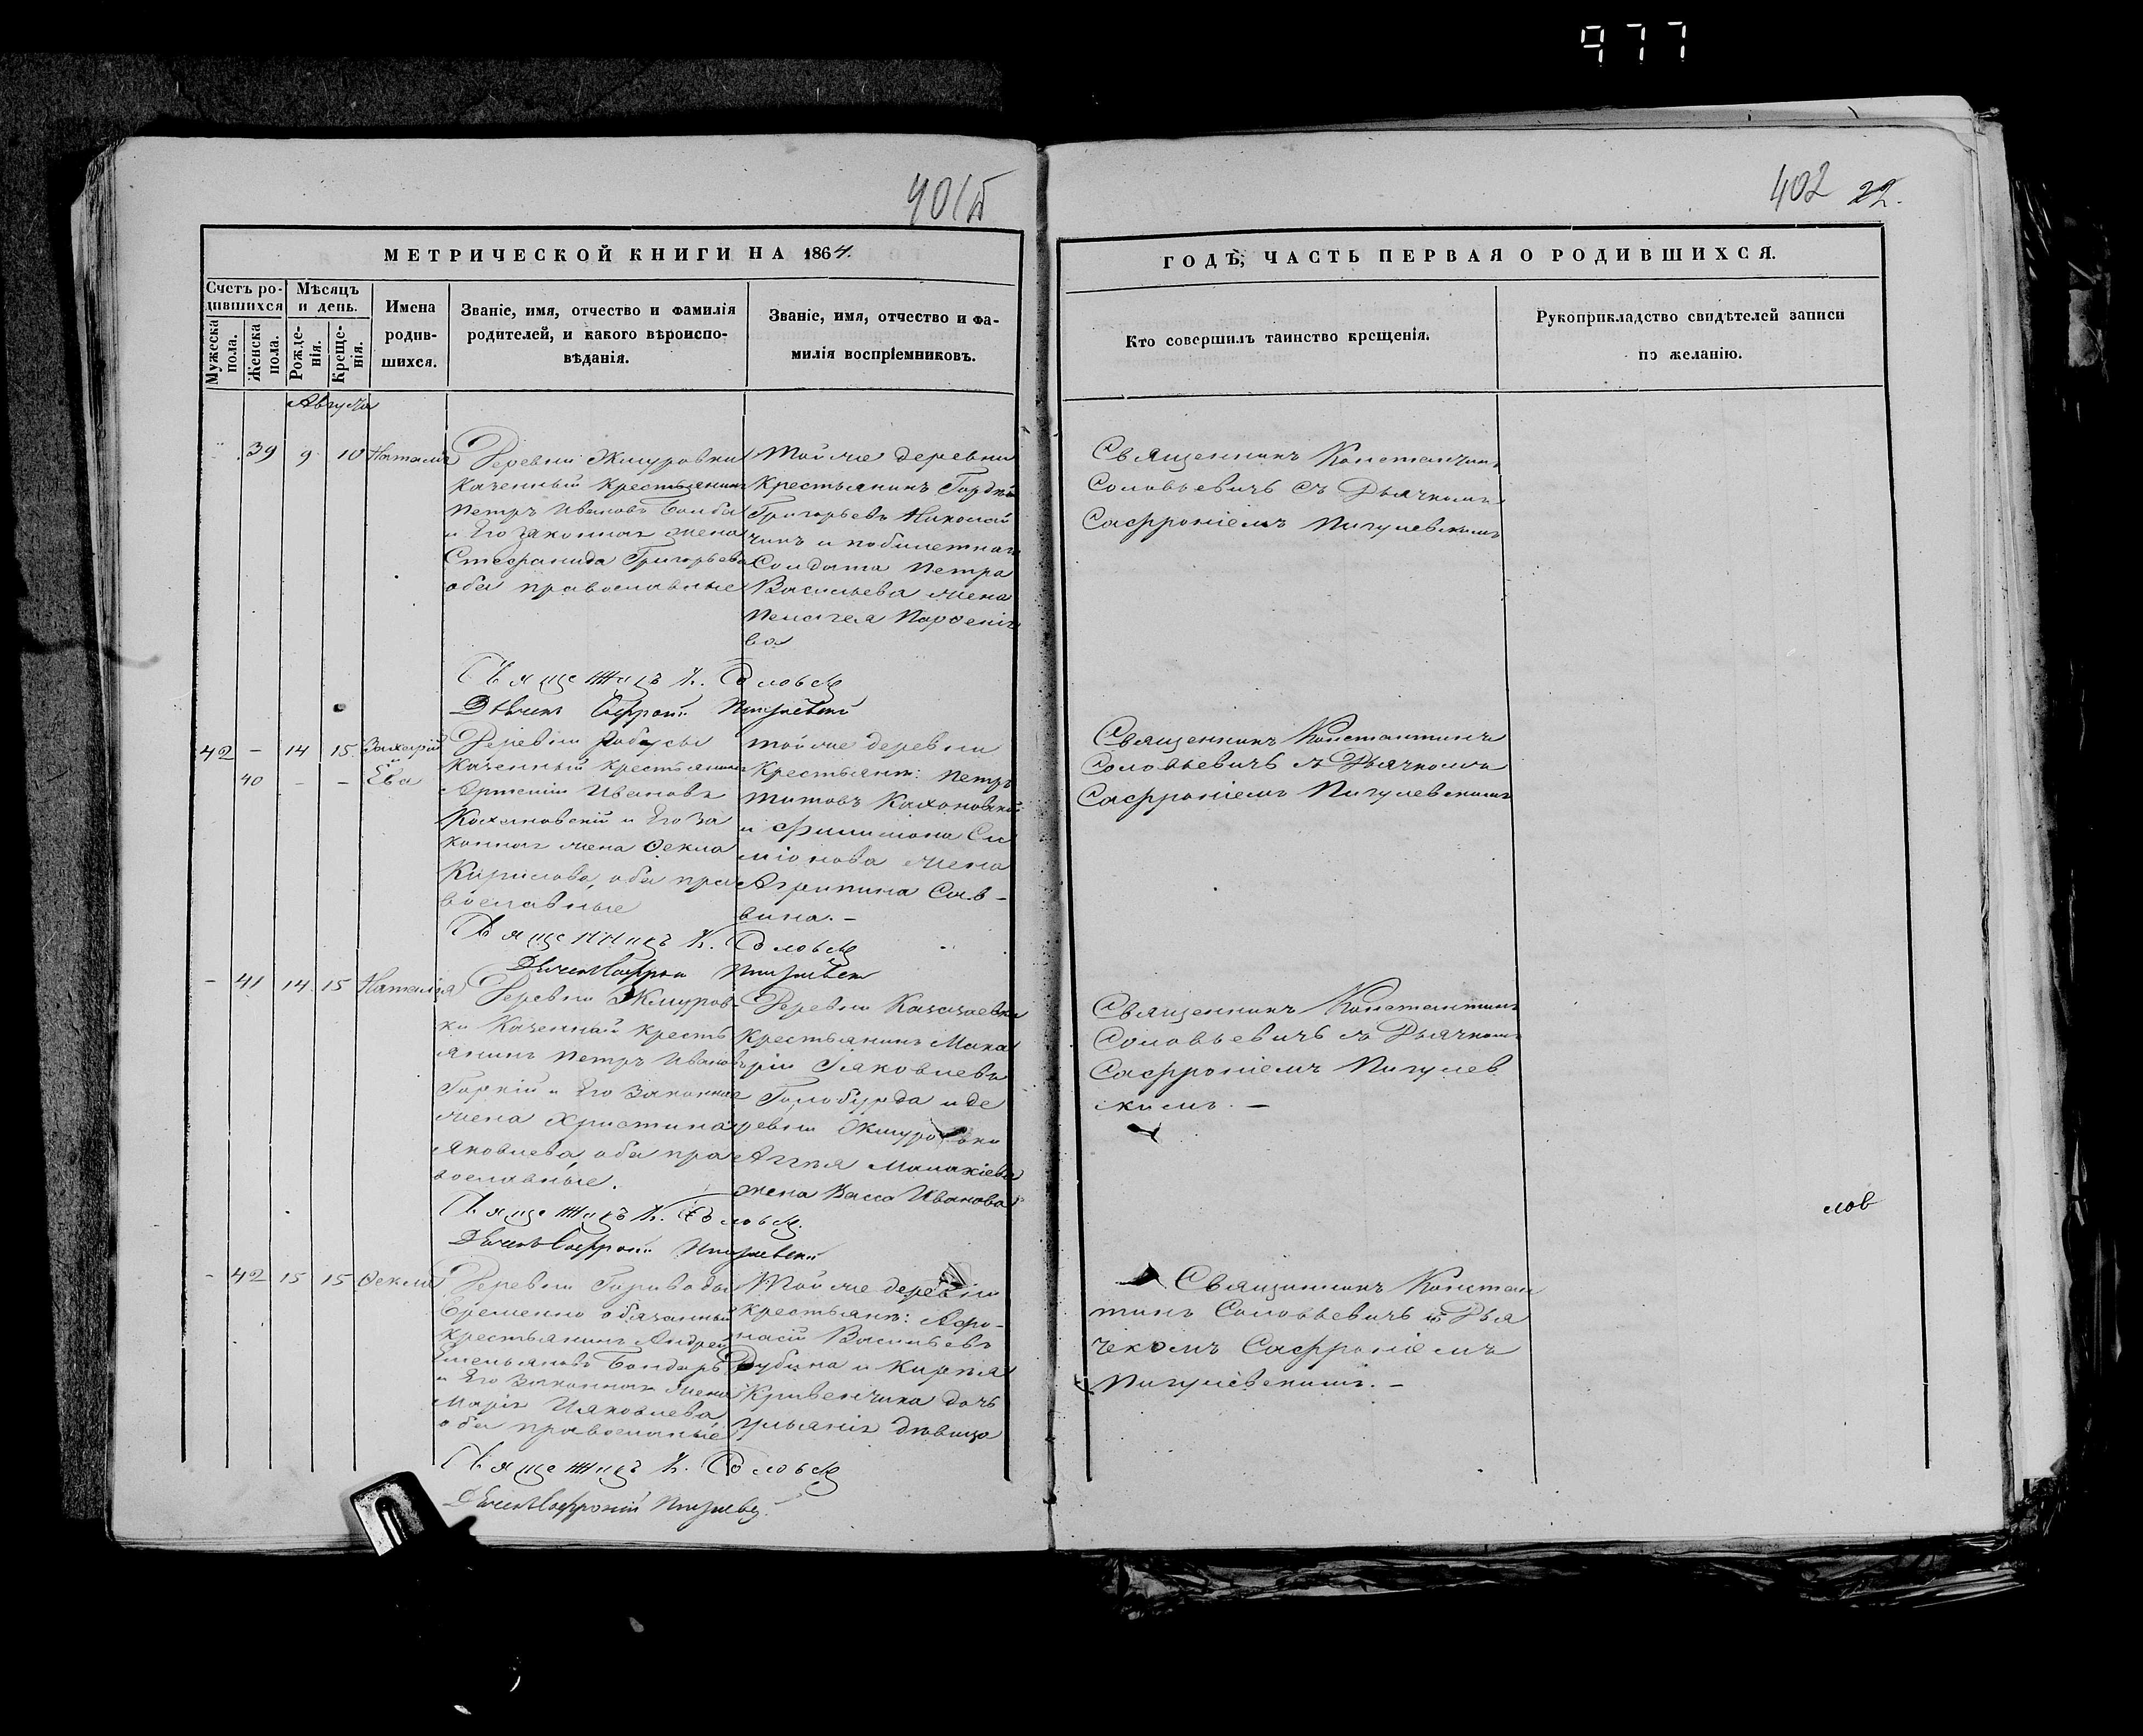 977
401б
402 22.
МЕТРИЧЕСКОЙ КНИГИ НА 1864.
ГОДЪ, ЧАСТЬ ПЕРВАЯ О РОДИВШИХСЯ.
Счетъ ро-
дившихся
Мужеска
пола.
Женска
пола.
Мѣсяцъ
и день.
Рожде-
нія.
Креще-
нія.
Имена
родив-
шихся.
Званіе, имя, отчество и фамилія
родителей, и какого вѣроиспо-
вѣданія.
Званіе, имя, отчество и фа-
милія воспріемниковъ.
Кто совершилъ таинство крещенія.
Рукоприкладство свидѣтелей записи
по желанію.
Августа
39 9 10 Наталія
Деревни Жмуровки
казенный крестьянинъ
Петръ Ивановъ
и Его законная жена
Стефанида Григорьева
оба православные
Той же деревни
крестьянинъ Гордѣй
Григорьевъ Николай
чукъ и побилетнаго
Солдата Петра
Васильева жена
Пелагея Парѳеніе
ва
Священникъ Константинъ
Соловьевичъ съ Дьячкомъ
Сафроніемъ Пигулевскимъ
Священникъ К. Соловье
Дьячекъ Сафроній Пигулевскій
42 - 14 15 Захарій
и
40 - - Ева
Деревни
казенный крестьянинъ
Артемій Ивановъ
Кохановскій и Его за
конная жена Ѳекла
Кирилова, оба пра
вославные
той же деревни
крестьян: Петръ
Титовъ Кохановскій
и Филимона Си
міонова жена
Агрипина Сав-
вина. -
Священникъ Константинъ
Соловьевичъ съ Дьячкомъ
Сафроніемъ Пигулевскимъ
Священникъ К. Соловье
Дьячекъ Сафроній Пигулевск
- 41 14 15 Наталія
Деревни Жмуров-
ки Казенный кресть
янинъ Петръ Ивановъ
Горкій и Его законная
жена Христина
Яковлева, оба пра
вославные.
Деревни
крестьянинъ Мака
рій Іяковлевъ
Голобурда и де
ревни Жмуровки
жена Васса Иванова
Священникъ Константинъ
Соловьевичъ съ Дьячкомъ
Сафроніемъ Пигулев
скимъ. -
Священникъ К. Соловье
Дьячекъ Сафроній Пигулевскій
лов
- 42 15 15 Ѳекла
Деревни
временно обязанный
крестьянинъ Андрей
Емельяновъ Бондарь
и Его законная жена
Марія Іяковлева,
оба православные
Той же деревни
крестьян: Афа-
насій Васильевъ
Дубина и Карпа
Кривенчука дочь
Ульянія дѣвица
Священникъ Констан
тинъ Соловьевичъ съ Дья
чекомъ Сафроніемъ
Пигулевскимъ. -
Священникъ К. Соловье
Дьячекъ Сафроній Пигулевс